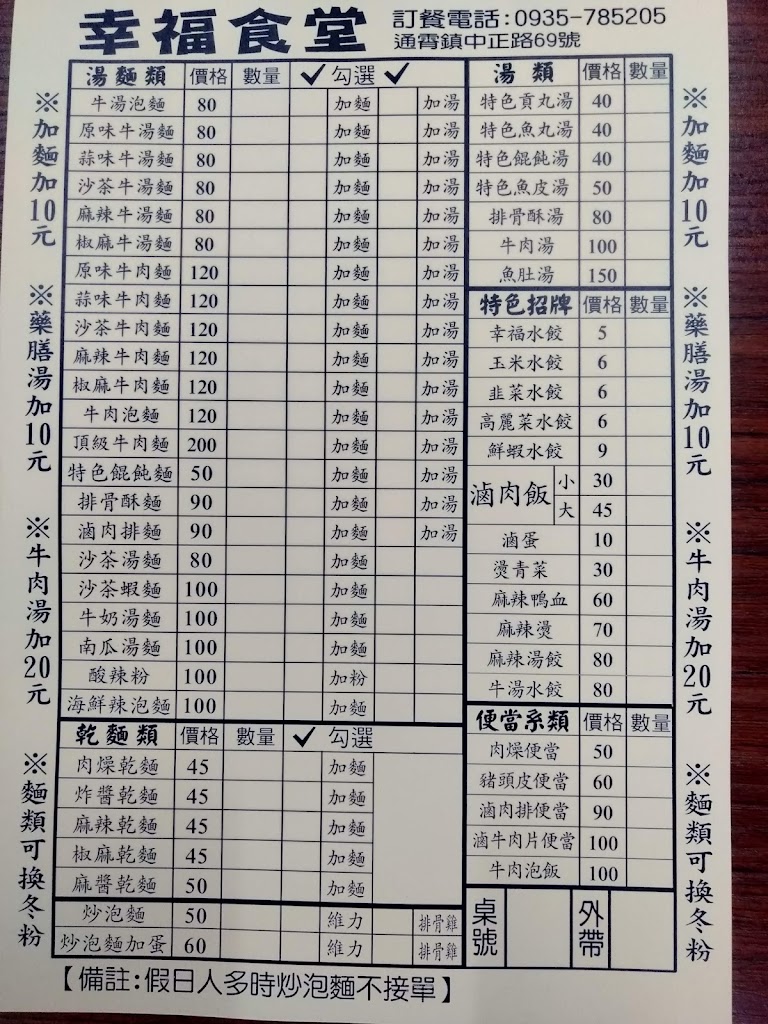 幸福食堂
訂餐電話:0935-785205
通霄鎮中正路69號
湯麵類 價格 數量 ✓勾選✓
牛湯泡麵 80 加麵 加湯
原味牛湯麵 80 加麵 加湯
蒜味牛湯麵 80 加麵 加湯
沙茶牛湯麵 80 加麵 加湯
麻辣牛湯麵 80 加麵 加湯
椒麻牛湯麵 80 加麵 加湯
原味牛肉麵 120 加麵 加湯
蒜味牛肉麵 120 加麵 加湯
沙茶牛肉麵 120 加麵 加湯
麻辣牛肉麵 120 加麵 加湯
椒麻牛肉麵 120 加麵 加湯
牛肉泡麵 120 加麵 加湯
頂級牛肉麵 200 加麵 加湯
特色餛飩麵 50 加麵 加湯
排骨酥麵 90 加麵 加湯
滷肉排麵 90 加麵 加湯
沙茶湯麵 80 加麵
沙茶蝦麵 100 加麵
牛奶湯麵 100 加麵
南瓜湯麵 100 加麵
酸辣粉 100 加粉
海鮮辣泡麵 100 加麵
乾麵類 價格 數量 ✓勾選
肉燥乾麵 45 加麵
炸醬乾麵 45 加麵
麻辣乾麵 45 加麵
椒麻乾麵 45 加麵
麻醬乾麵 50 加麵
炒泡麵 50 維力 排骨雞
炒泡麵加蛋 60 維力 排骨雞
湯類 價格 數量
特色貢丸湯 40
特色魚丸湯 40
特色餛飩湯 40
特色魚皮湯 50
排骨酥湯 80
牛肉湯 100
魚肚湯 150
特色招牌 價格 數量
幸福水餃 5
玉米水餃 6
韭菜水餃 6
高麗菜水餃 6
鮮蝦水餃 9
滷肉飯 小 30
大 45
滷蛋 10
燙青菜 30
麻辣鴨血 60
麻辣燙 70
麻辣湯餃 80
牛湯水餃 80
便當系類 價格 數量
肉燥便當 50
豬頭皮便當 60
滷肉排便當 90
滷牛肉片便當 100
牛肉泡飯 100
桌號 外帶
【備註:假日人多時炒泡麵不接單】
※加麵加10元 ※藥膳湯加10元 ※牛肉湯加20元 ※麵類可換冬粉
※加麵加10元 ※藥膳湯加10元 ※牛肉湯加20元 ※麵類可換冬粉